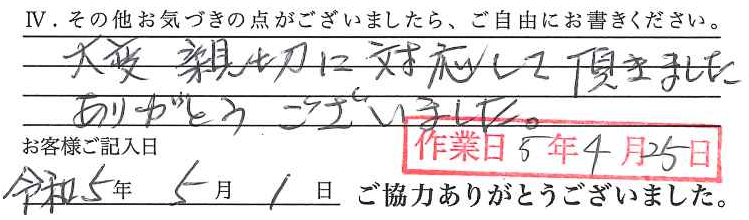 Ⅳ．その他お気づきの点がございましたら、ご自由にお書きください。
大変 親切に 対応して 頂きました
ありがとう ございました。
お客様ご記入日
作業日 5年4月25日
令和5年 5月 1日 ご協力ありがとうございました。